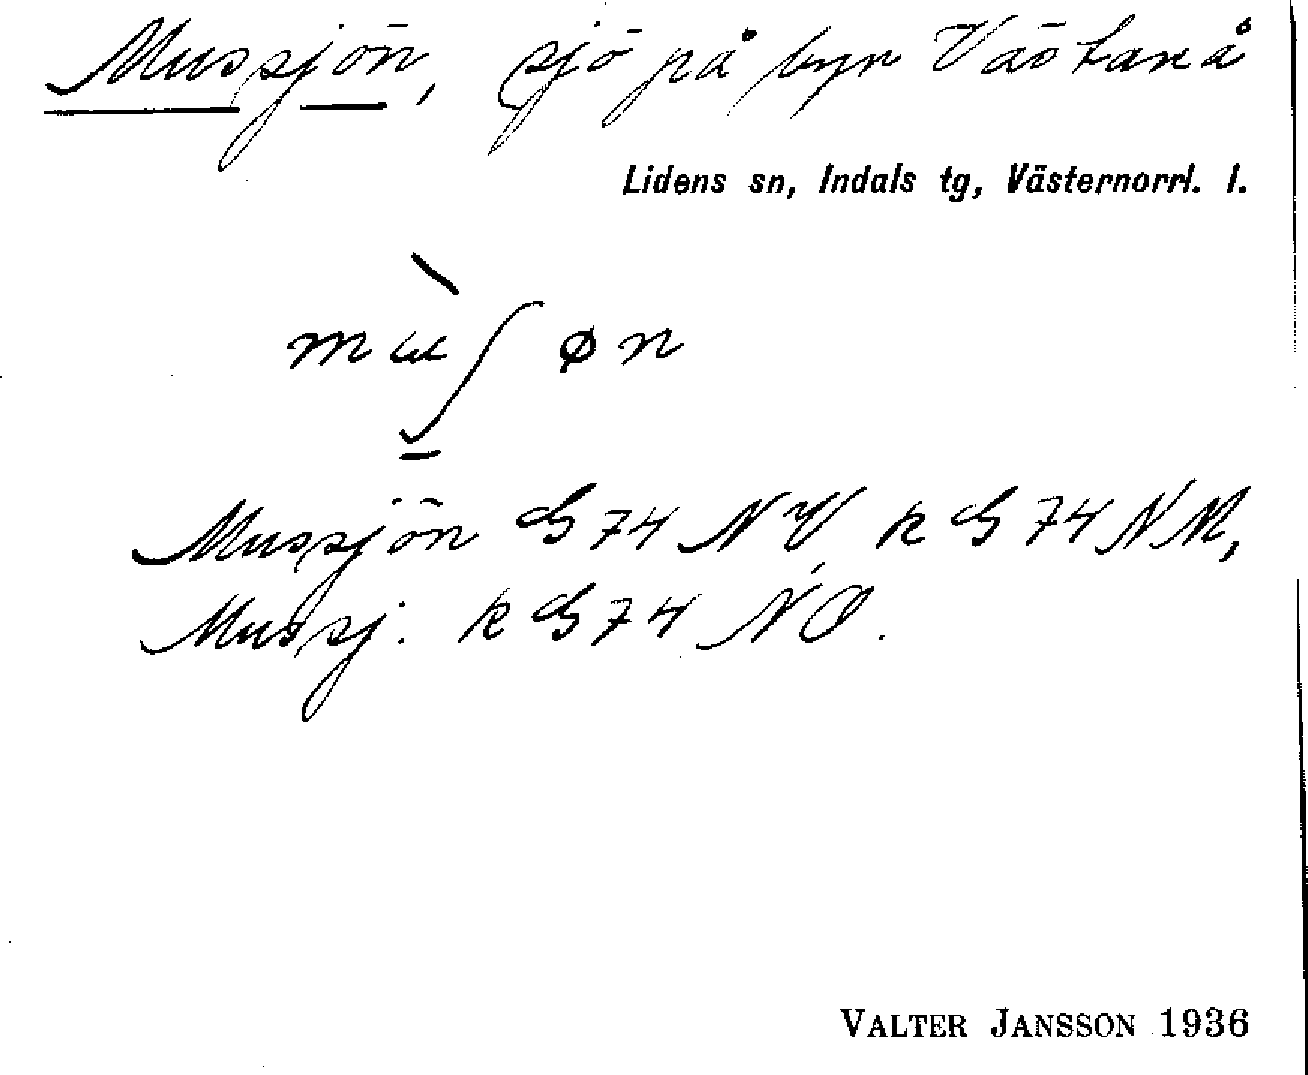 Mussjön, sjö på byn Västanå
Lidens sn, Indals tg, Västernorrl. l.
mɯʃøn
Mussjön G 74 NV, k G 74 NM,
Mussj. k G 74 NO.
VALTER JANSSON 1936